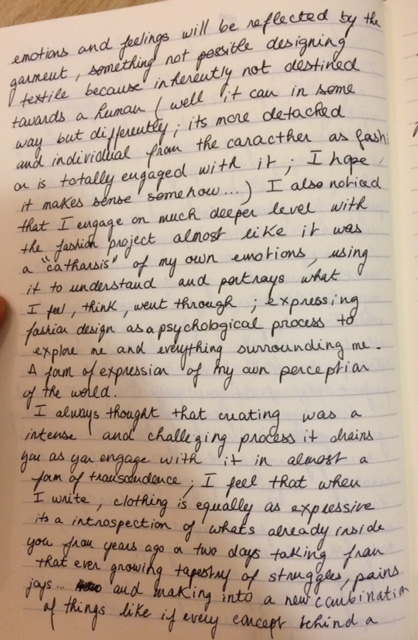 emotions and feelings will be reflected by the
garment, something not possible designing
textile because inherently not destined
towards a human (well it can in some
way but differently; its more detached
and individual from the caracther as fashi
on is totally engaged with it; I hope
it makes sense somehow...) I also noticed
that I engage on much deeper level with
the fashion project almost like it was
a "catharsis" of my own emotions, using
it to understand and portrays what
I feel, think, went through; expressing
fashion design as a psychological process to
explore me and everything surrounding me.
A form of expression of my own perception
of the world.
I always thought that creating was a
intense and challeging process it drains
you as you engage with it in almost a
form of transcendence; I feel that when
I write, clothing is equally as expressive
its a introspection of whats already inside
you from years ago or two days taking from
that ever growing tapestry of struggles, pains
joys... and making into a new combination
of things like if every concept behind a